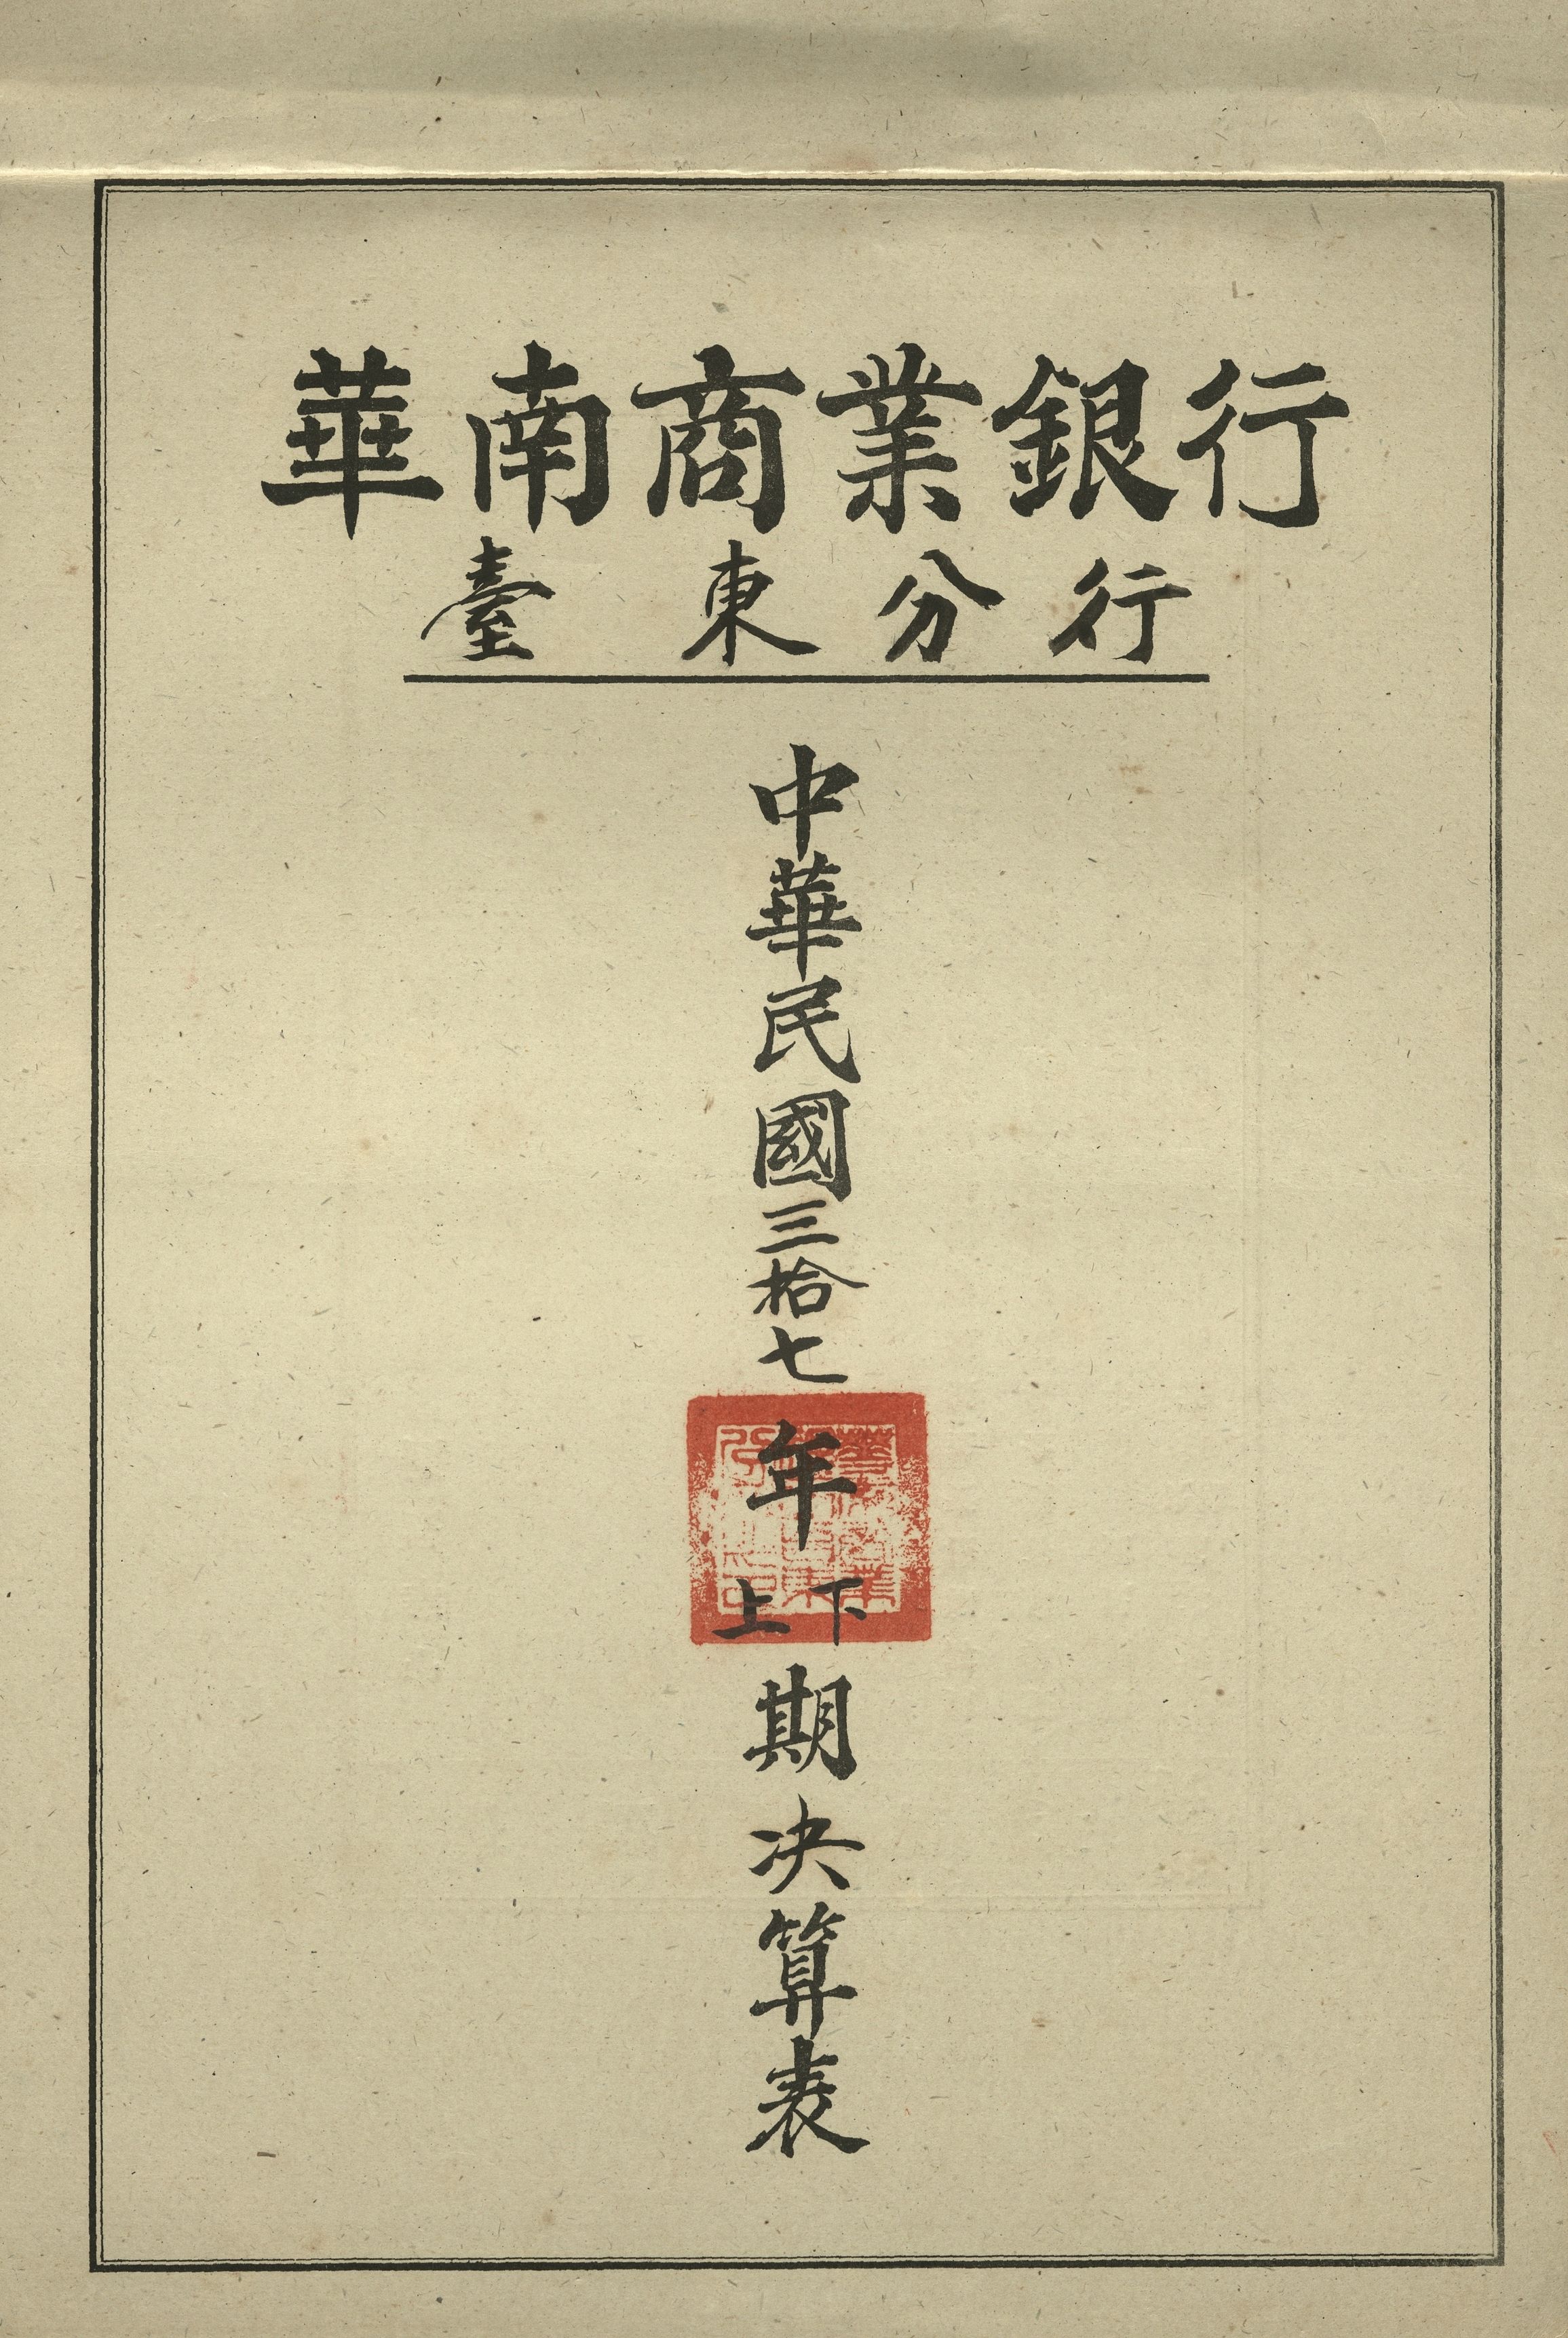 華南商業銀行
臺東分行
中華民國三拾七年上下期決算表